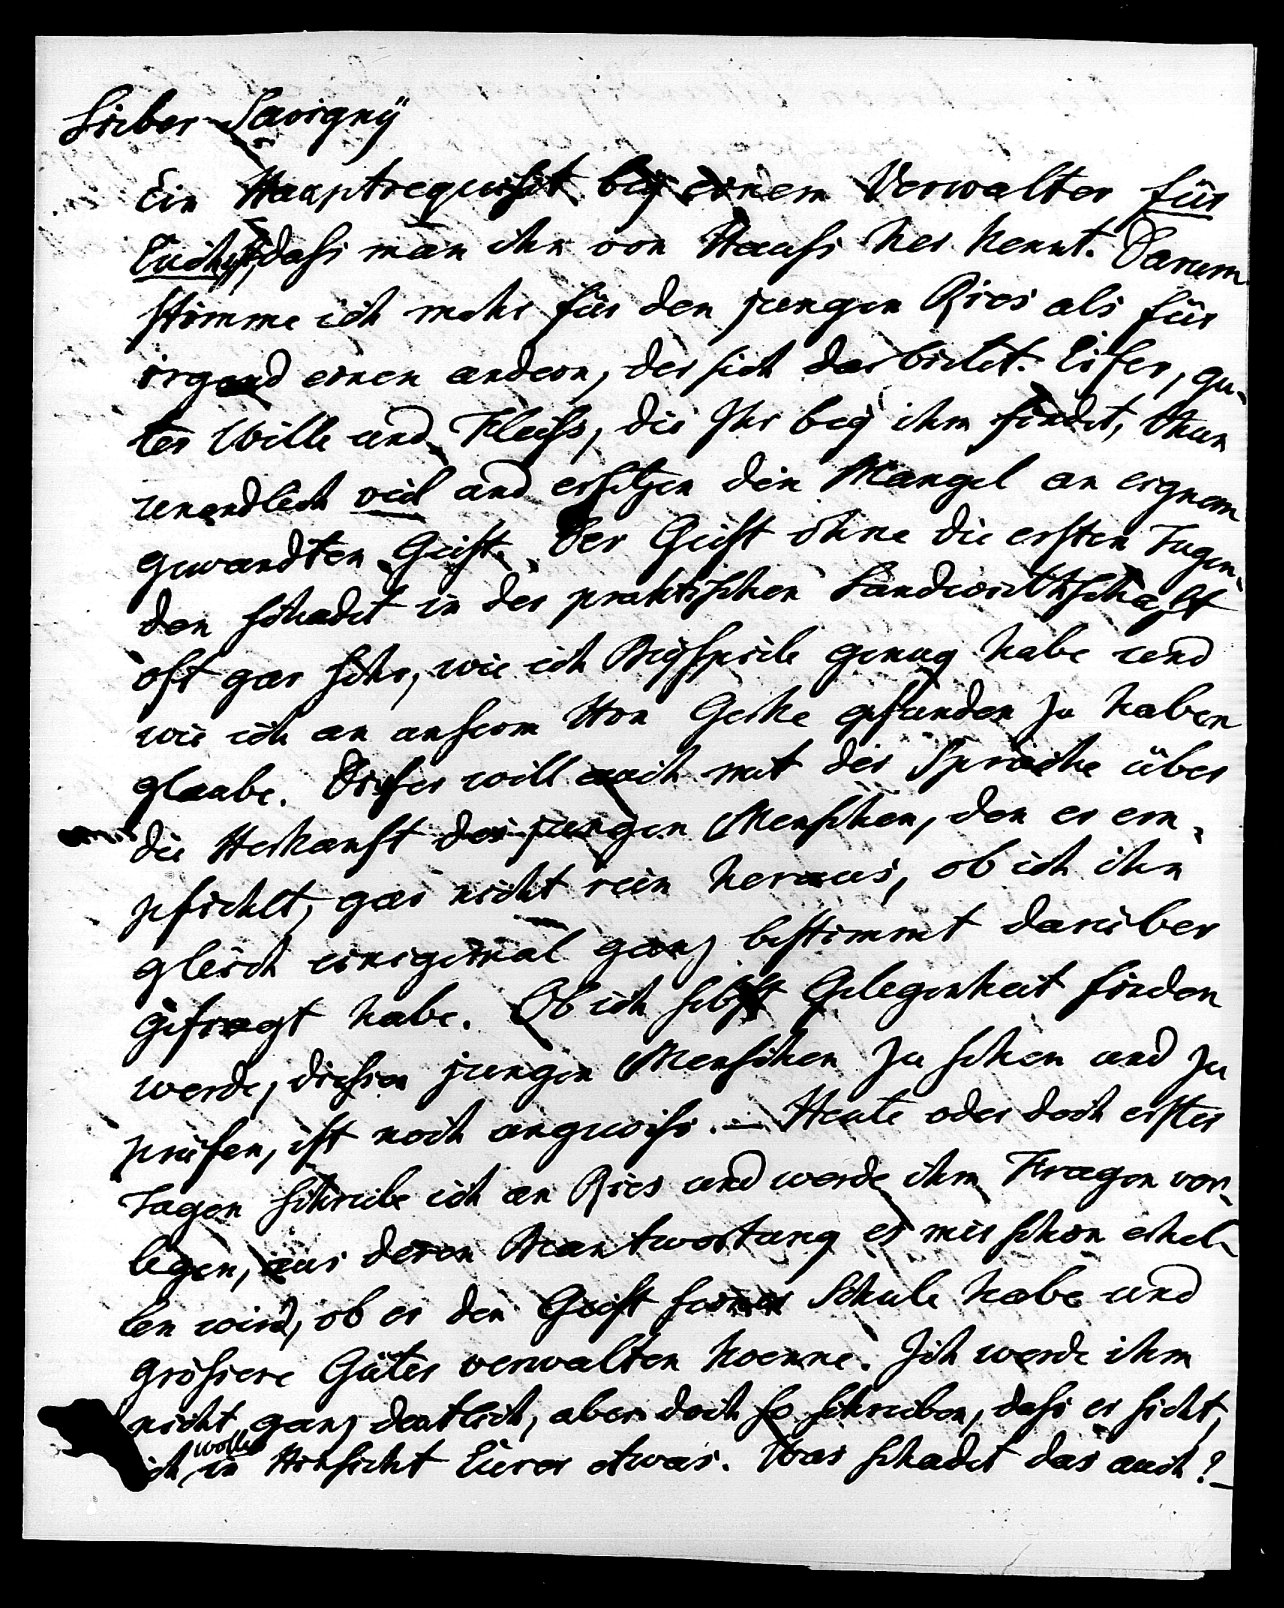 Lieber Savigny
Ein Hauptrequisit bey einem Verwalter für
Euch ist, dass man ihn von Hauss her kennt. Darum
stimme ich mehr für den jungen Ries als für
irgend einen andern, der sich darbietet. Eifer, gu-
ter Wille und Fleiss, die Ihr bey ihm findet, thun
unendlich viel und ersetzen den Mangel an eignem
gewandten Geist. Der Geist ohne die ersten Tugen-
den schadet in der praktischen Landwirthschaft
oft gar sehr, wie ich Beyspiele genug habe und
wie ich an unserm Hrn Gerke gefunden zu haben
glaube. Dieser will auch mit der Sprache über
die Herkunft des jungen Menschen, den er em-
pfiehlt, gar nicht rein heraus, ob ich ihn
gleich einigemal ganz bestimmt darüber
gefragt habe. Ob ich selbst Gelegenheit finden
werde, diesen jungen Menschen zu sehen und zu
prüfen, ist noch ungewiss. — Heute oder doch erster
Tagen schreibe ich an Ries und werde ihm Fragen vor-
legen, aus deren Beantwortung es mir schon erhel-
len wird, ob er den Geist seiner Schule habe und
grössere Güter verwalten koenne. Ich werde ihm
nicht ganz deutlich, aber doch so schreiben, dass er sieht,
ich wolle in Hinsicht Eurer etwas. Was schadet das auch? –